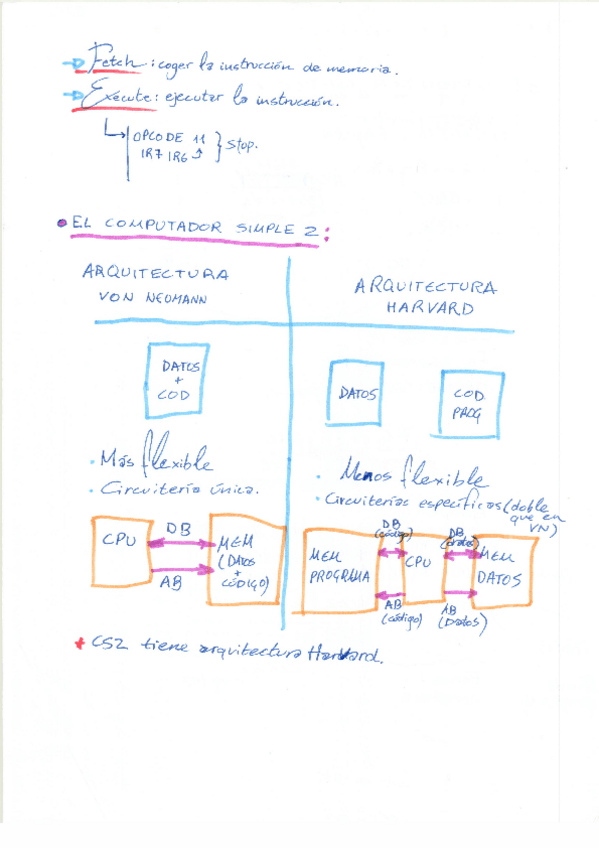 Fetch: coger la instrucción de memoria.
Execute: ejecutar la instrucción.
OPCODE 11
IR7 IR6
} Stop.
EL COMPUTADOR SIMPLE 2:
ARQUITECTURA
VON NEOMANN
DATOS
+
COD
• Más flexible
• Circuitería única.
CPU
DB
AB
MEM
(DATOS
+
CÓDIGO)
ARQUITECTURA
HARVARD
DATOS
COD
PROG
• Menos flexible
• Circuiterías específicas (doble
que en
VN)
MEM
PROGRAMA
DB
(código)
AB
(código)
CPU
DB
(datos)
AB
(Datos)
MEM
DATOS
* CS2 tiene arquitectura Harvard.